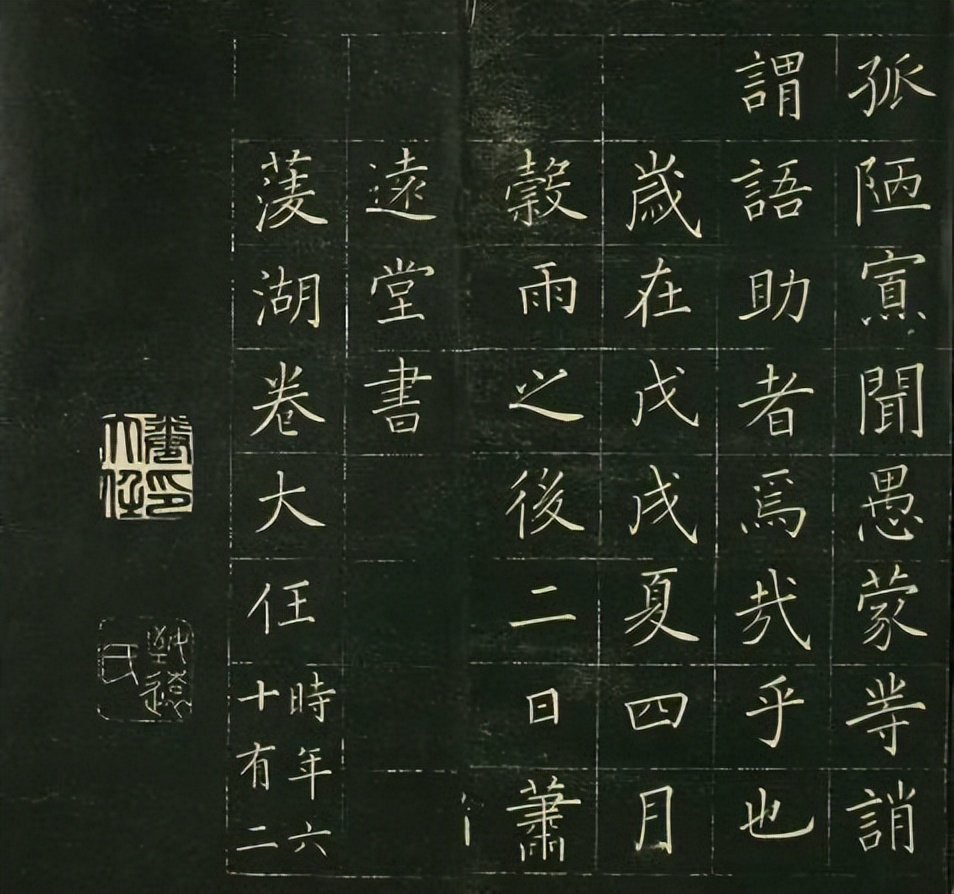 孤陋寡聞愚蒙等誚
謂語助者焉哉乎也
歲在戊戌夏四月
穀雨之後二日蕭
遠堂書
蔆湖卷大任時年六十有二
卷印大任